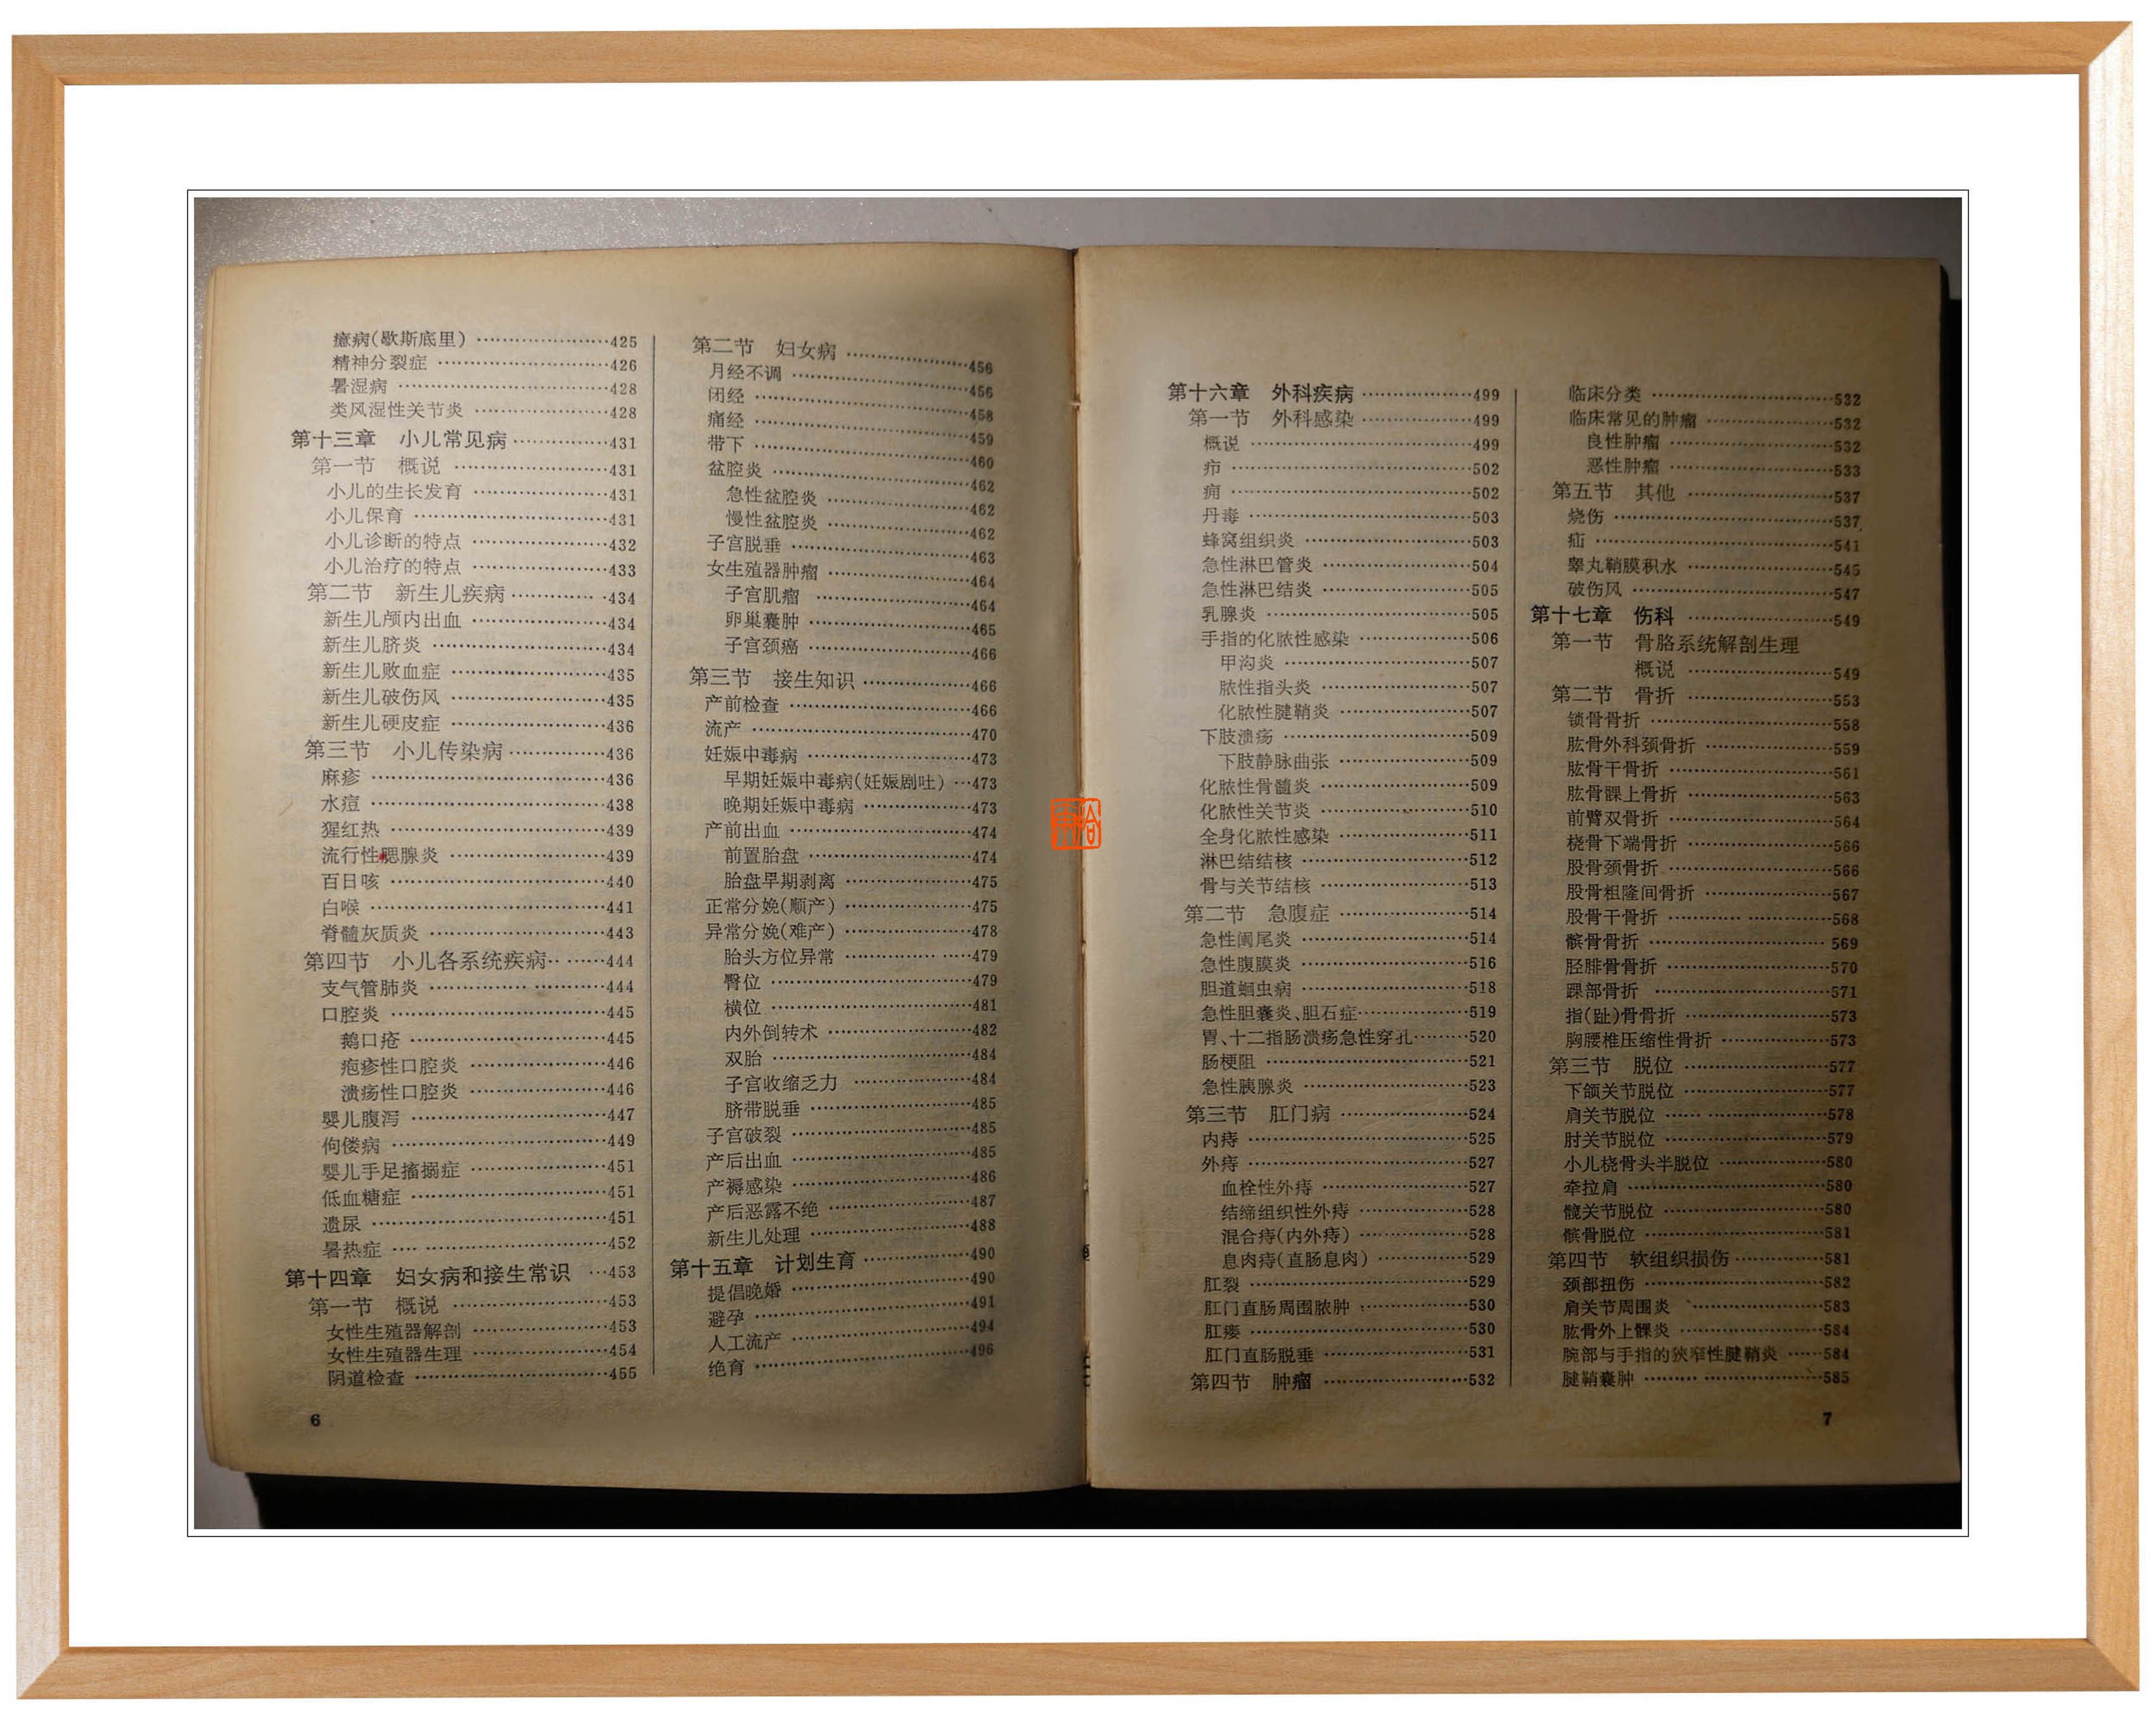 癔病(歇斯底里)……425
精神分裂症……426
暑湿病……428
类风湿性关节炎……428
第十三章 小儿常见病……431
第一节 概说……431
小儿的生长发育……431
小儿保育……431
小儿诊断的特点……432
小儿治疗的特点……433
第二节 新生儿疾病……434
新生儿颅内出血……434
新生儿脐炎……434
新生儿败血症……435
新生儿破伤风……435
新生儿硬皮症……436
第三节 小儿传染病……436
麻疹……436
水痘……438
猩红热……439
流行性腮腺炎……439
百日咳……440
白喉……441
脊髓灰质炎……443
第四节 小儿各系统疾病……444
支气管肺炎……444
口腔炎……445
鹅口疮……445
疱疹性口腔炎……446
溃疡性口腔炎……446
婴儿腹泻……447
佝偻病……449
婴儿手足搐搦症……451
低血糖症……451
遗尿……451
暑热症……452
第十四章 妇女病和接生常识……453
第一节 概说……453
女性生殖器解剖……453
女性生殖器生理……454
阴道检查……455
第二节 妇女病……456
月经不调……456
闭经……458
痛经……459
带下……460
盆腔炎……462
急性盆腔炎……462
慢性盆腔炎……462
子宫脱垂……463
女生殖器肿瘤……464
子宫肌瘤……464
卵巢囊肿……465
子宫颈癌……466
第三节 接生知识……466
产前检查……466
流产……470
妊娠中毒病……473
早期妊娠中毒病(妊娠剧吐)……473
晚期妊娠中毒病……473
产前出血……474
前置胎盘……474
胎盘早期剥离……475
正常分娩(顺产)……475
异常分娩(难产)……478
胎头方位异常……479
臀位……479
横位……481
内外倒转术……482
双胎……484
子宫收缩乏力……484
脐带脱垂……485
子宫破裂……485
产后出血……485
产褥感染……486
产后恶露不绝……487
新生儿处理……488
第十五章 计划生育……490
提倡晚婚……490
避孕……491
人工流产……494
绝育……496
6
第十六章 外科疾病……499
第一节 外科感染……499
概说……499
疖……502
痈……502
丹毒……503
蜂窝组织炎……503
急性淋巴管炎……504
急性淋巴结炎……505
乳腺炎……505
手指的化脓性感染……506
甲沟炎……507
脓性指头炎……507
化脓性腱鞘炎……507
下肢溃疡……509
下肢静脉曲张……509
化脓性骨髓炎……509
化脓性关节炎……510
全身化脓性感染……511
淋巴结结核……512
骨与关节结核……513
第二节 急腹症……514
急性阑尾炎……514
急性腹膜炎……516
胆道蛔虫病……518
急性胆囊炎、胆石症……519
胃、十二指肠溃疡急性穿孔……520
肠梗阻……521
急性胰腺炎……523
第三节 肛门病……524
内痔……525
外痔……527
血栓性外痔……527
结缔组织性外痔……528
混合痔(内外痔)……528
息肉痔(直肠息肉)……529
肛裂……529
肛门直肠周围脓肿……530
肛瘘……530
肛门直肠脱垂……531
第四节 肿瘤……532
临床分类……532
临床常见的肿瘤……532
良性肿瘤……532
恶性肿瘤……533
第五节 其他……537
烧伤……537
疝……541
睾丸鞘膜积水……545
破伤风……547
第十七章 伤科……549
第一节 骨胳系统解剖生理
概说……549
第二节 骨折……553
锁骨骨折……558
肱骨外科颈骨折……559
肱骨干骨折……561
肱骨髁上骨折……563
前臂双骨折……564
桡骨下端骨折……566
股骨颈骨折……566
股骨粗隆间骨折……567
股骨干骨折……568
髌骨骨折……569
胫腓骨骨折……570
踝部骨折……571
指(趾)骨骨折……573
胸腰椎压缩性骨折……573
第三节 脱位……577
下颌关节脱位……577
肩关节脱位……578
肘关节脱位……579
小儿桡骨头半脱位……580
牵拉肩……580
髋关节脱位……580
髌骨脱位……581
第四节 软组织损伤……581
颈部扭伤……582
肩关节周围炎……583
肱骨外上髁炎……584
腕部与手指的狭窄性腱鞘炎……584
腱鞘囊肿……585
7